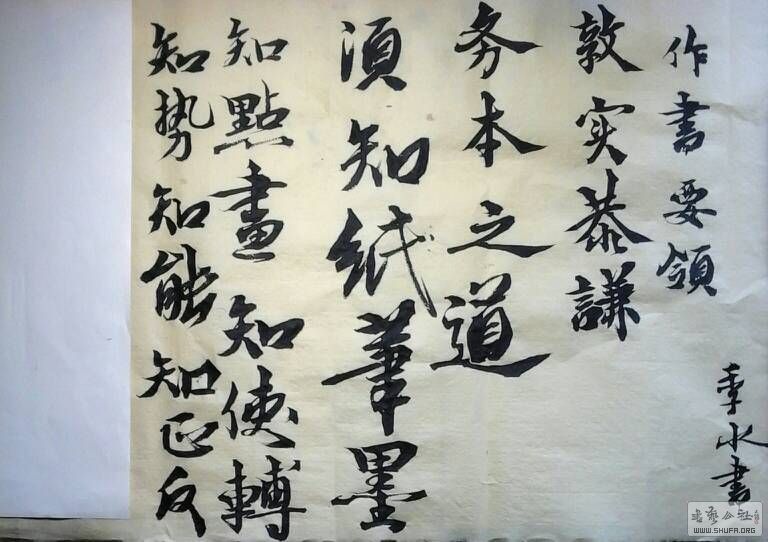 作書要領
敦实恭謙
务本之道
須知紙筆墨
知點畫知使轉
知势知能知正反
季水書
WWW.SHUFA.ORG